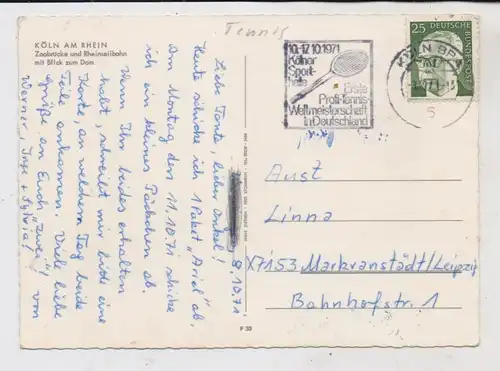 Tennis
KÖLN AM RHEIN
Zoobrücke und Rheinseilbahn
mit Blick zum Dom
8.10.71
Liebe Tante, lieber Onkel!
Heute schicke ich 1 Paket "Ariel" ab.
Am Montag den 11.10.71 schicke
ich ein kleines Päckchen ab.
Wenn Ihr beides erhalten
habt, schreibt mir bitte eine
Karte, an welchem Tag beide
Teile ankamen. Viele liebe
Grüße an Euch "zwei", von
Werner, Inge + Sylvia!
10.-17.10.1971
Kölner
Sport-
halle
Erste
Profi-Tennis-
Weltmeisterschaft
in Deutschland
KÖLN
25
DEUTSCHE
BUNDESPOST
Aust
Linna
X7153 Markranstädt/Leipzig
Bahnhofstr. 1
F 33